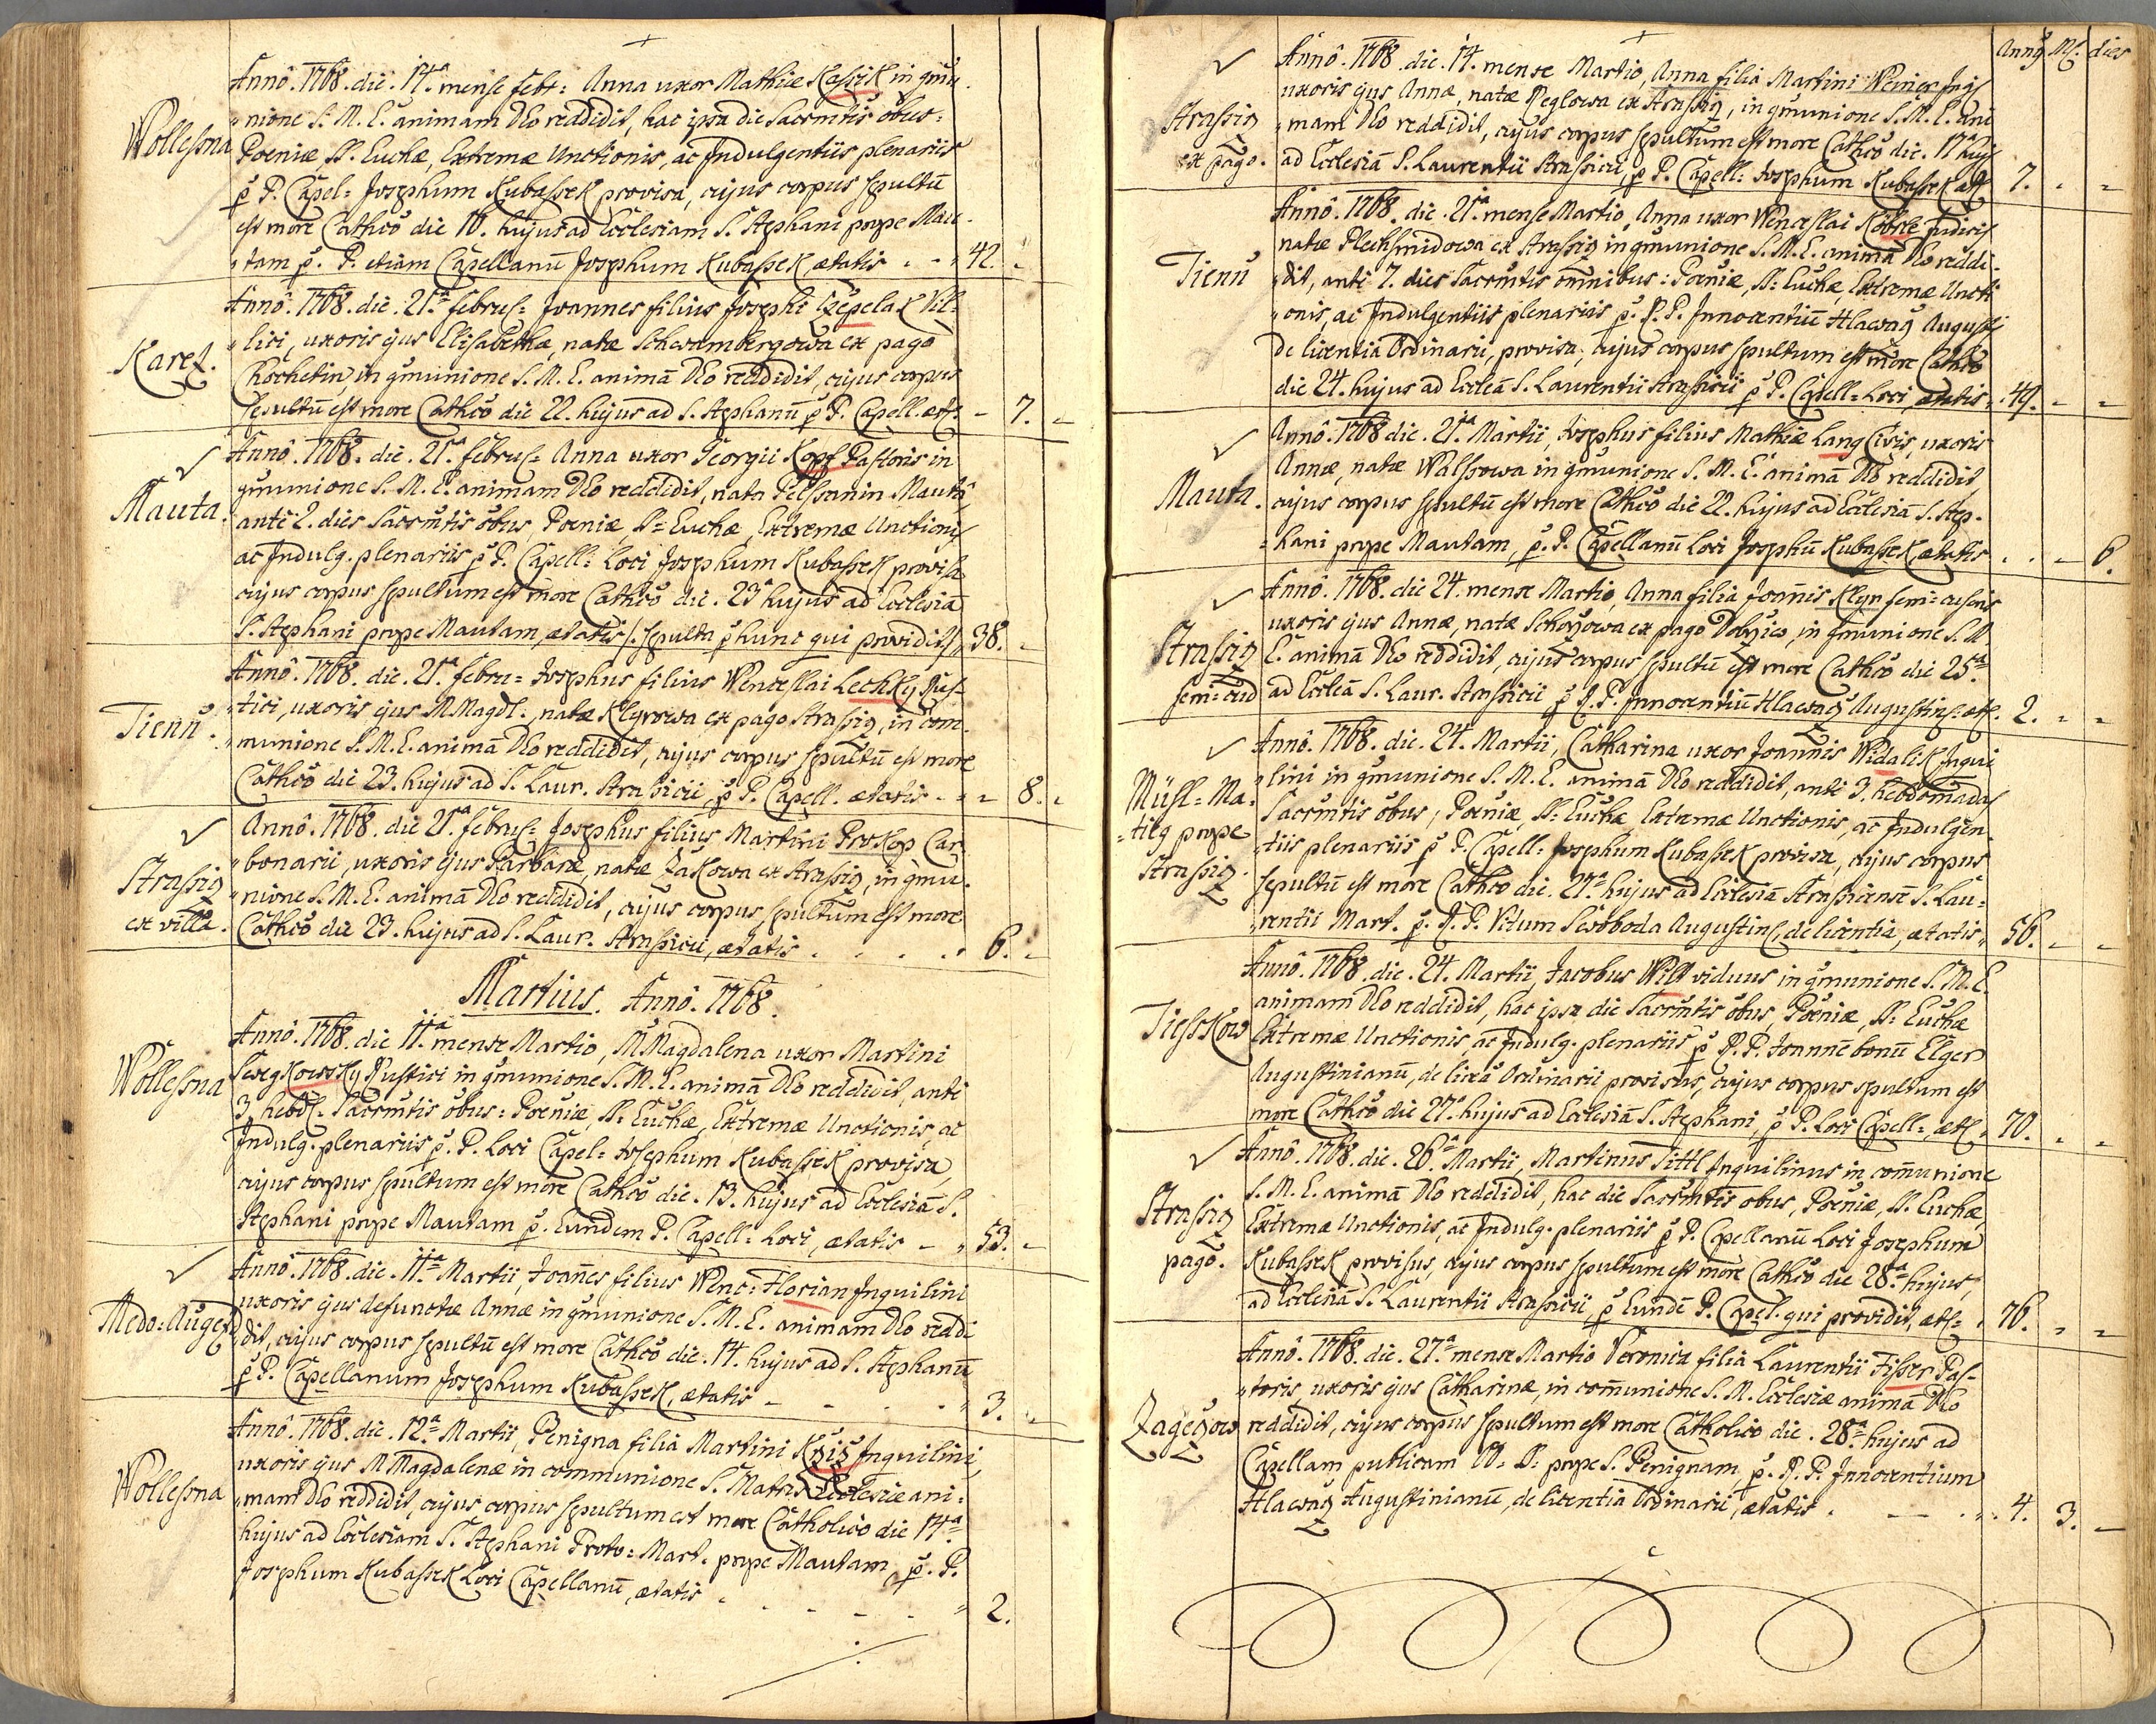 Wollessna
Annô. 1768. die. 14ª. mense febr: Anna uxor Mathiæ Kassik in gmu
nione S. M. E. animam Deo reddidit, hac ipsa die Sacrm̃tis obus:
Poeniæ SS. Euchæ, Extremæ Unctionis, ac Indulgentiis plenariis
p̃ P. Capel: Josephum Kubassek provisa, cujus corpus sepultũ
est more Cathco die 16. hujus ad Ecclesiam S. Stephani prope Mau-
„tam p̃. P. etiam Capellanũ Josephum Kubassek, ætatis . - „ 42. „
Karez.
Annô. 1768. die. 21ª februs= Joannes filius Josephi Czepelak Vil=
„lici, uxoris ejus Elisabethæ, natæ Schwambergowa ex pago
Chochetin, in gmunione S. M. E. animã Deo reddidit, cujus corpus
sepultũ est more Cathco die 22. hujus ad S. Stephanũ p̃ P. Capell. æt: - 7. „
Mauta.
Annô. 1768. die. 21ª februs= Anna uxor Georgii Kopf Pastoris in
gmunione S. M. E. animam Deo reddidit, nata Pelssanin Mautã
anti 2. dies Sacrm̃tis obus, Poeniæ, SS= Euchæ, Extremæ Unctionis
ac Indulg. plenariis p̃ P. Capell: Loci Josephum Kubassek provisa
cujus corpus sepultum est more Cathco die. 23ª hujus ad Ecclesiã
S. Stephani prope Mautam, ætatis /: sepulta p̃ hunc qui providit :/ „ 38. „
Tienũ.
Annô. 1768. die. 21ª. febru= Josephus filius Wenceslai Lechky Rus-
„tici, uxoris ejus M Magdl., natæ Klyrowa ex pago Strassig, in com-
„munione S. M. E. animã Deo reddidit, cujus corpus sepultũ est more
Cathco die 23. hujus ad S. Laur. Strasicii, p̃ P. Capell. ætatis . „ „ 8. „
Strassig
ex villa.
Annô. 1768. die 21ª februs= Josephus filius Martini Prokop Car-
„bonarii, uxoris ejus Barbaræ, natæ Zakowa ex Strassig, in gmu-
„nione S. M. E. animã Deo reddidit, cujus corpus sepultum est more
Cathco die 23. hujus ad S. Laur. Strassicii, ætatis . . . . „ 6. „
Martius. Annô. 1768.
Wollessna
Annô. 1768. die 11ª. mense Martio, M Magdalena uxor Martini
Swegkowsky Rustici in gmunione S. M. E. animã Deo reddidit, anti
3 hebd= Sacrm̃tis obus: Poeniæ, SS: Euchæ, Extremæ Unctionis, ac
Indulg. plenariis p̃. P. Loci Capel: Josephum Kubassek provisa,
cujus corpus sepultum est more Cathco die. 13. hujus ad Ecclesiã S.
Stephani prope Mautam p̃. Eundem P. Capell: Loci, ætatis - „ 53. „
Medo=Augezd
Annô. 1768. die. 11.ª Martii, Joañes filius Wenc: Florian Inquilini
uxoris ejus defunctæ Annæ in gmunione S. M. E. animam Deo reddi
dit, cujus corpus sepultũ est more Cathco die. 14. hujus ad S. Stephanũ
p̃ P. Capellanum Josephum Kubassek, ætatis - - . . „ 3. „
Wollessna
Annô. 1768. die. 12.ª Martii, Benigna filia Martini Kziz Inquilini,
uxoris ejus M Magdalenæ in communione S. Matris Ecclesiæ ani=
„mam Deo reddidit, cujus corpus sepultum est more Catholico die 14ª=
hujus ad Ecclesiam S. Stephani Proto: Mart. prope Mautam p̃. P.
Josephum Kubassek Loci Capellanũ, ætatis . . - - - „ 2.
Annꝰ Ms. dies
Strassig
ex pago.
Annô. 1768. die. 14. mense Martio, Anna filia Martini Weiner Inqs
uxoris ejus Annæ, natæ Peglowa ex Strassig, in gmunione S. M. E. ani
„mam Deo reddidit, cujus corpus sepultum est more Cathco die. 17ª hujs
ad Ecclesiã S. Laurentii Strassicii, p̃ P. Capell: Josephum Kubassek æt: 7. „ „
Tienũ
Annô. 1768. die. 21ª. mense Martio, Anna uxor Wenceslai Kobrle Judicis
natæ Plechsmidowa ex Strassig in gmunione S. M. E. animã Deo reddi-
„dit, anti 7. dies Sacrm̃tis omnibus: Poeniæ, SS: Euchæ, Extremæ Uncti
„onis, ac Indulgentiis plenariis p̃. R. P. Innocentiũ Hlawaz Augusts
De licentia Ordinarii, provisa, cujus corpus sepultum est more Cathco
die 24. hujus ad Eccleã S. Laurentii Strassicii p̃ P. Capell= Loci, ætatis, 49. „ „
Mauta.
Annô. 1768 die. 21ª. Martii, Josephus filius Mathiæ Lang Civis, uxoris
Annæ, natæ Walssowa in gmunione S. M. E. animã Deo reddidit
cujus corpus sepultũ est more Cathco die 22. hujus ad Ecclesiã S. Step-
=hani prope Mautam, p̃. P. Capellanũ Loci Josephũ Kubassek ætatis . . - 6.
Strassig
semi=cud
Annô. 1768. die 24. mense Martio, Anna filia Joañis Klyn semi=cusoris
uxoris ejus Annæ, natæ Schoyowa ex pago Dobziw, in gmunione S. M
E. animã Deo reddidit, cujus corpus sepultũ est more Cathco die 25ª=
ad Eccleã S. Laur. Strassicii p̃ R. P. Innocentiũ Hlawaz Augustins= æt. 2. „ „
Mühl=Ma-
=tieg prope
Strassig.
Annô. 1768. die. 24. Martii, Catharina uxor Joannis Widalik Inqui
lini in gmunione S. M. E. animã Deo reddidit, anti 3. hebdomadas
Sacrm̃tis obus, Poeniæ, SS: Euchæ Extremæ Unctionis, ac Indulgen-
tiis plenariis p̃ P. Capell: Josephum Kubassek provisa, cujus corpus
sepultũ est more Cathco die. 27ª hujus ad Ecclesiã Strassiciensẽ S. Lau=
„rentii Mart. p̃. R. P. Vitum Swoboda Augustins, de licentia, ætatis „ 56. „ „
Tiesskow
Annô. 1768. die. 24. Martii, Jacobus Wild viduus in gmunione S. M. E.
animam Deo reddidit, hac ipsa die Sacrm̃tis obus, Poeniæ, SS: Euchæ
Extremæ Unctionis, ac Indulg. plenariis p̃ R. P. Joannẽ bonũ Elger
Augustinianũ, de licẽa Ordinarii provisus, cujus corpus sepultum est
more Cathco die 27ª. hujus ad Ecclesiã S. Stephani, p̃ P. Loci Capell=, æt: „ 70. „ „
Strassig
pago.
Annô. 1768. die. 26.ª Martii, Martinus Tittl Inquilinus in com̃unione
S. M. E. animã Deo reddidit, hac die Sacrm̃tis obus, Poeniæ, SS. Euchæ,
Extremæ Unctionis, ac Indulg. plenariis p̃ P. Capellanũ Loci Josephum
Kubassek provisus, cujus corpus sepultum est more Cathco die 28ª= hujus,
ad Ecclesiã S. Laurentii Strassicii p̃ Eundẽ P. Capel. qui providit, æt= . 76. „ „
Zageczow
Annô. 1768. die. 27.ª mense Martio Veronica filia Laurentii Fisser Pas-
„toris uxoris ejus Catharinæ, in com̃unione S. M. Ecclesiæ animã Deo
reddidit, cujus corpus sepultum est more Catholico die. 28ª= hujus ad
Capellam publicam B. D. prope S. Benignam p̃. R. P. Innocentium
Hlawaz Augustinianũ, de licentia Ordinarii, ætatis . — . „. 4. 3. —